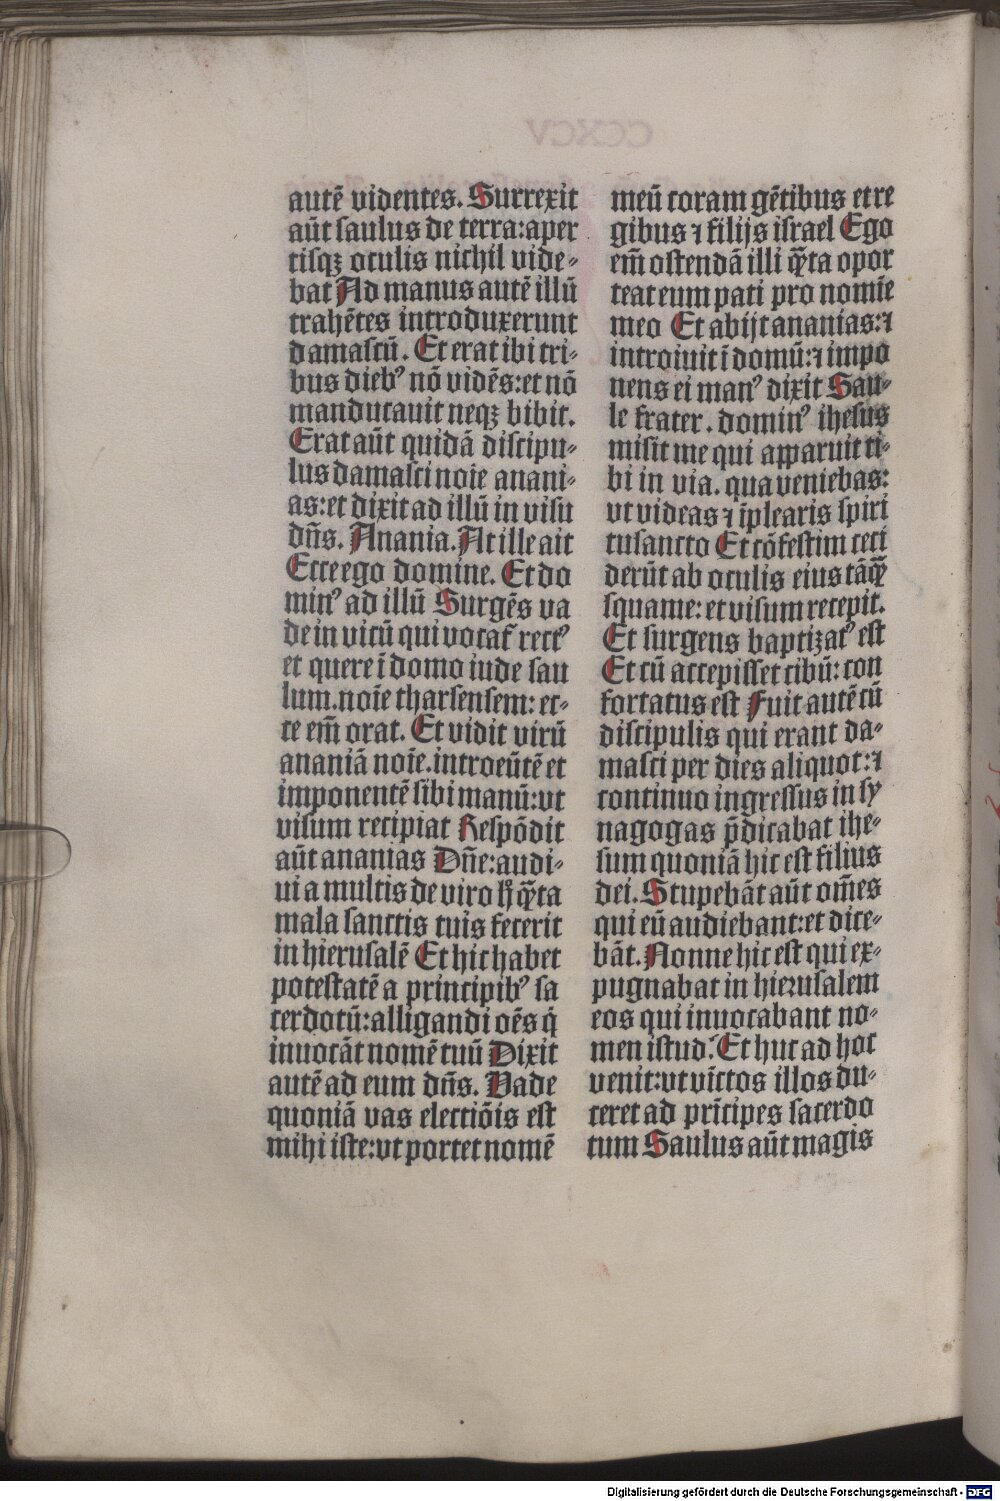 CCXCV
autē videntes. Surrexit
aūt saulus de terra: aper
tisqꝫ oculis nichil vide-
bat Ad manus autē illū
trahētes introduxerunt
damascū. Et erat ibi tri-
bus diebꝰ nō vidēs: et nō
manducauit neqꝫ bibit.
Erat aūt quidā discipu-
lus damasci noie anani-
as: et dixit ad illū in visu
dn̄s. Anania. At ille ait
Ecce ego domine. Et do
minꝰ ad illū Surgēs va
de in vicū qui vocat᷑ rectꝰ
et quere ī domo iude sau
lum. noīe tharsensem: ec-
ce em̄ orat. Et vidit virū
ananiā noīe. introeūtē et
imponentē sibi manū: vt
visum recipiat Respōdit
aūt ananias Dn̄e: audi-
ui a multis de viro h̄ q̄ta
mala sanctis tuis fecerit
in hierusalē Et hic habet
potestatē a principibꝰ sa
cerdotū: alligandi oēs q̇
inuocāt nomē tuū Dixit
autē ad eum dn̄s. Vade
quoniā vas electiōis est
mihi iste: vt portet nomē
meū coram gētibus et re
gibus ⁊ filijs israel Ego
em̄ ostendā illi q̄ta opor
teat eum pati pro nomīe
meo Et abijt ananias: ⁊
introiuit ī domū: ⁊ impo
nens ei manꝰ dixit Sau-
le frater. dominꝰ ihesus
misit me qui apparuit ti-
bi in via. qua veniebas:
vt videas ⁊ īplearis spiri
tusancto Et cōfestim ceci
derūt ab oculis eius tāq̄
squame: et visum recepit.
Et surgens baptizatꝰ est
Et cū accepisset cibū: con
fortatus est Fuit autē cū
discipulis qui erant da-
masci per dies aliquot: ⁊
continuo ingressus in sy
nagogas p̄dicabat ihe-
sum quoniā hic est filius
dei. Stupebāt aūt om̄es
qui eū audiebant: et dice-
bāt. Nonne hic est qui ex-
pugnabat in hierusalem
eos qui inuocabant no-
men istud? Et huc ad hoc
venit: vt vīctos illos du-
ceret ad prīcipes sacerdo
tum Saulus aūt magis
Digitalisierung gefördert durch die Deutsche Forschungsgemeinschaft - DFG